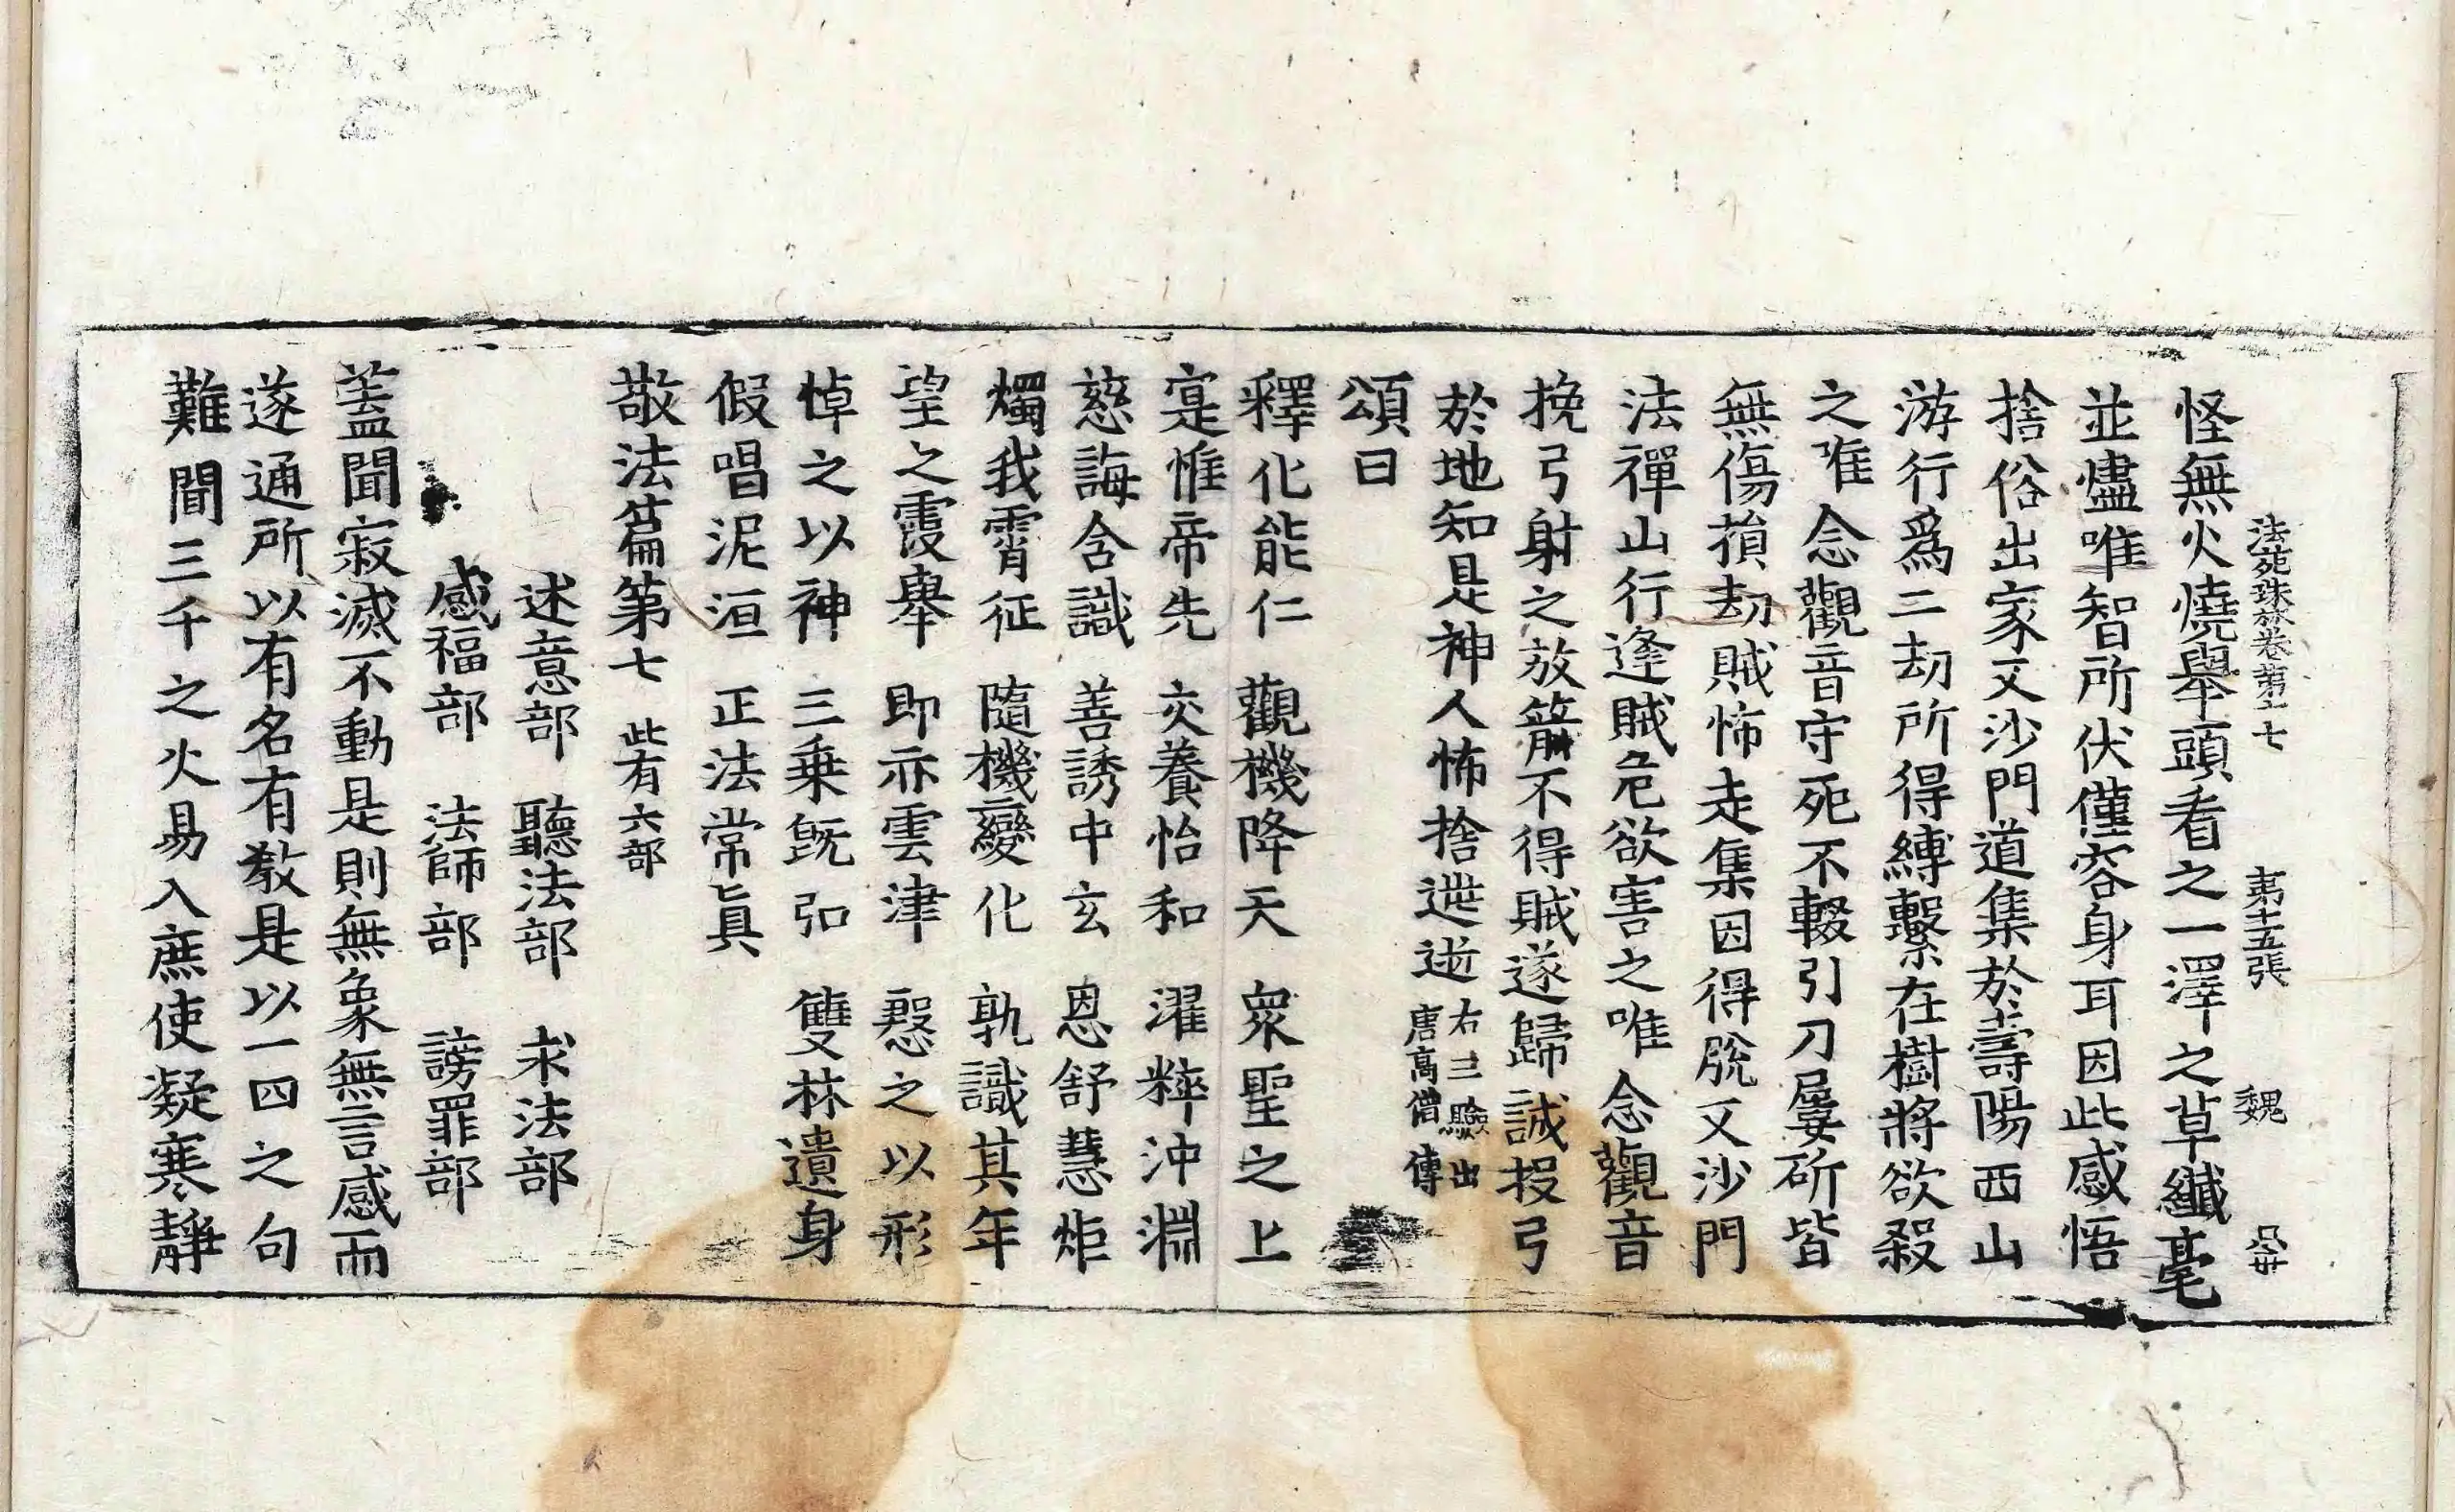 法苑珠林卷第十七　第十五張　魏
怪無火燒舉頭看之一澤之草纎毫
並燼唯智所伏僅容身耳因此感悟
捨俗出家又沙門道集於壽陽西山
游行爲二劫所得縛繫在樹將欲殺
之唯念觀音守死不輟引刀屢斫皆
無傷損劫賊怖走集因得脫又沙門
法禪山行逢賊危欲害之唯念觀音
挽弓射之放箭不得賊遂歸誠投弓
於地知是神人怖捨逃逝右三驗出唐高僧傳
頌曰
釋化能仁　觀機降天　衆聖之上
寔惟帝先　交養怡和　濯粹沖淵
慈誨含識　善誘中玄　恩舒慧炬
燭我霄征　隨機變化　孰識其年
望之霞舉　即亦雲津　慇之以形
悼之以神　三乗旣弘　雙林遺身
假唱泥洹　正法常眞
敬法篇第七　此有六部
述意部　聽法部　求法部
感福部　法師部　謗罪部
蓋聞寂滅不動是則無象無言感而
遂通所以有名有教是以一四之句
難聞三千之火易入庶使凝寒靜